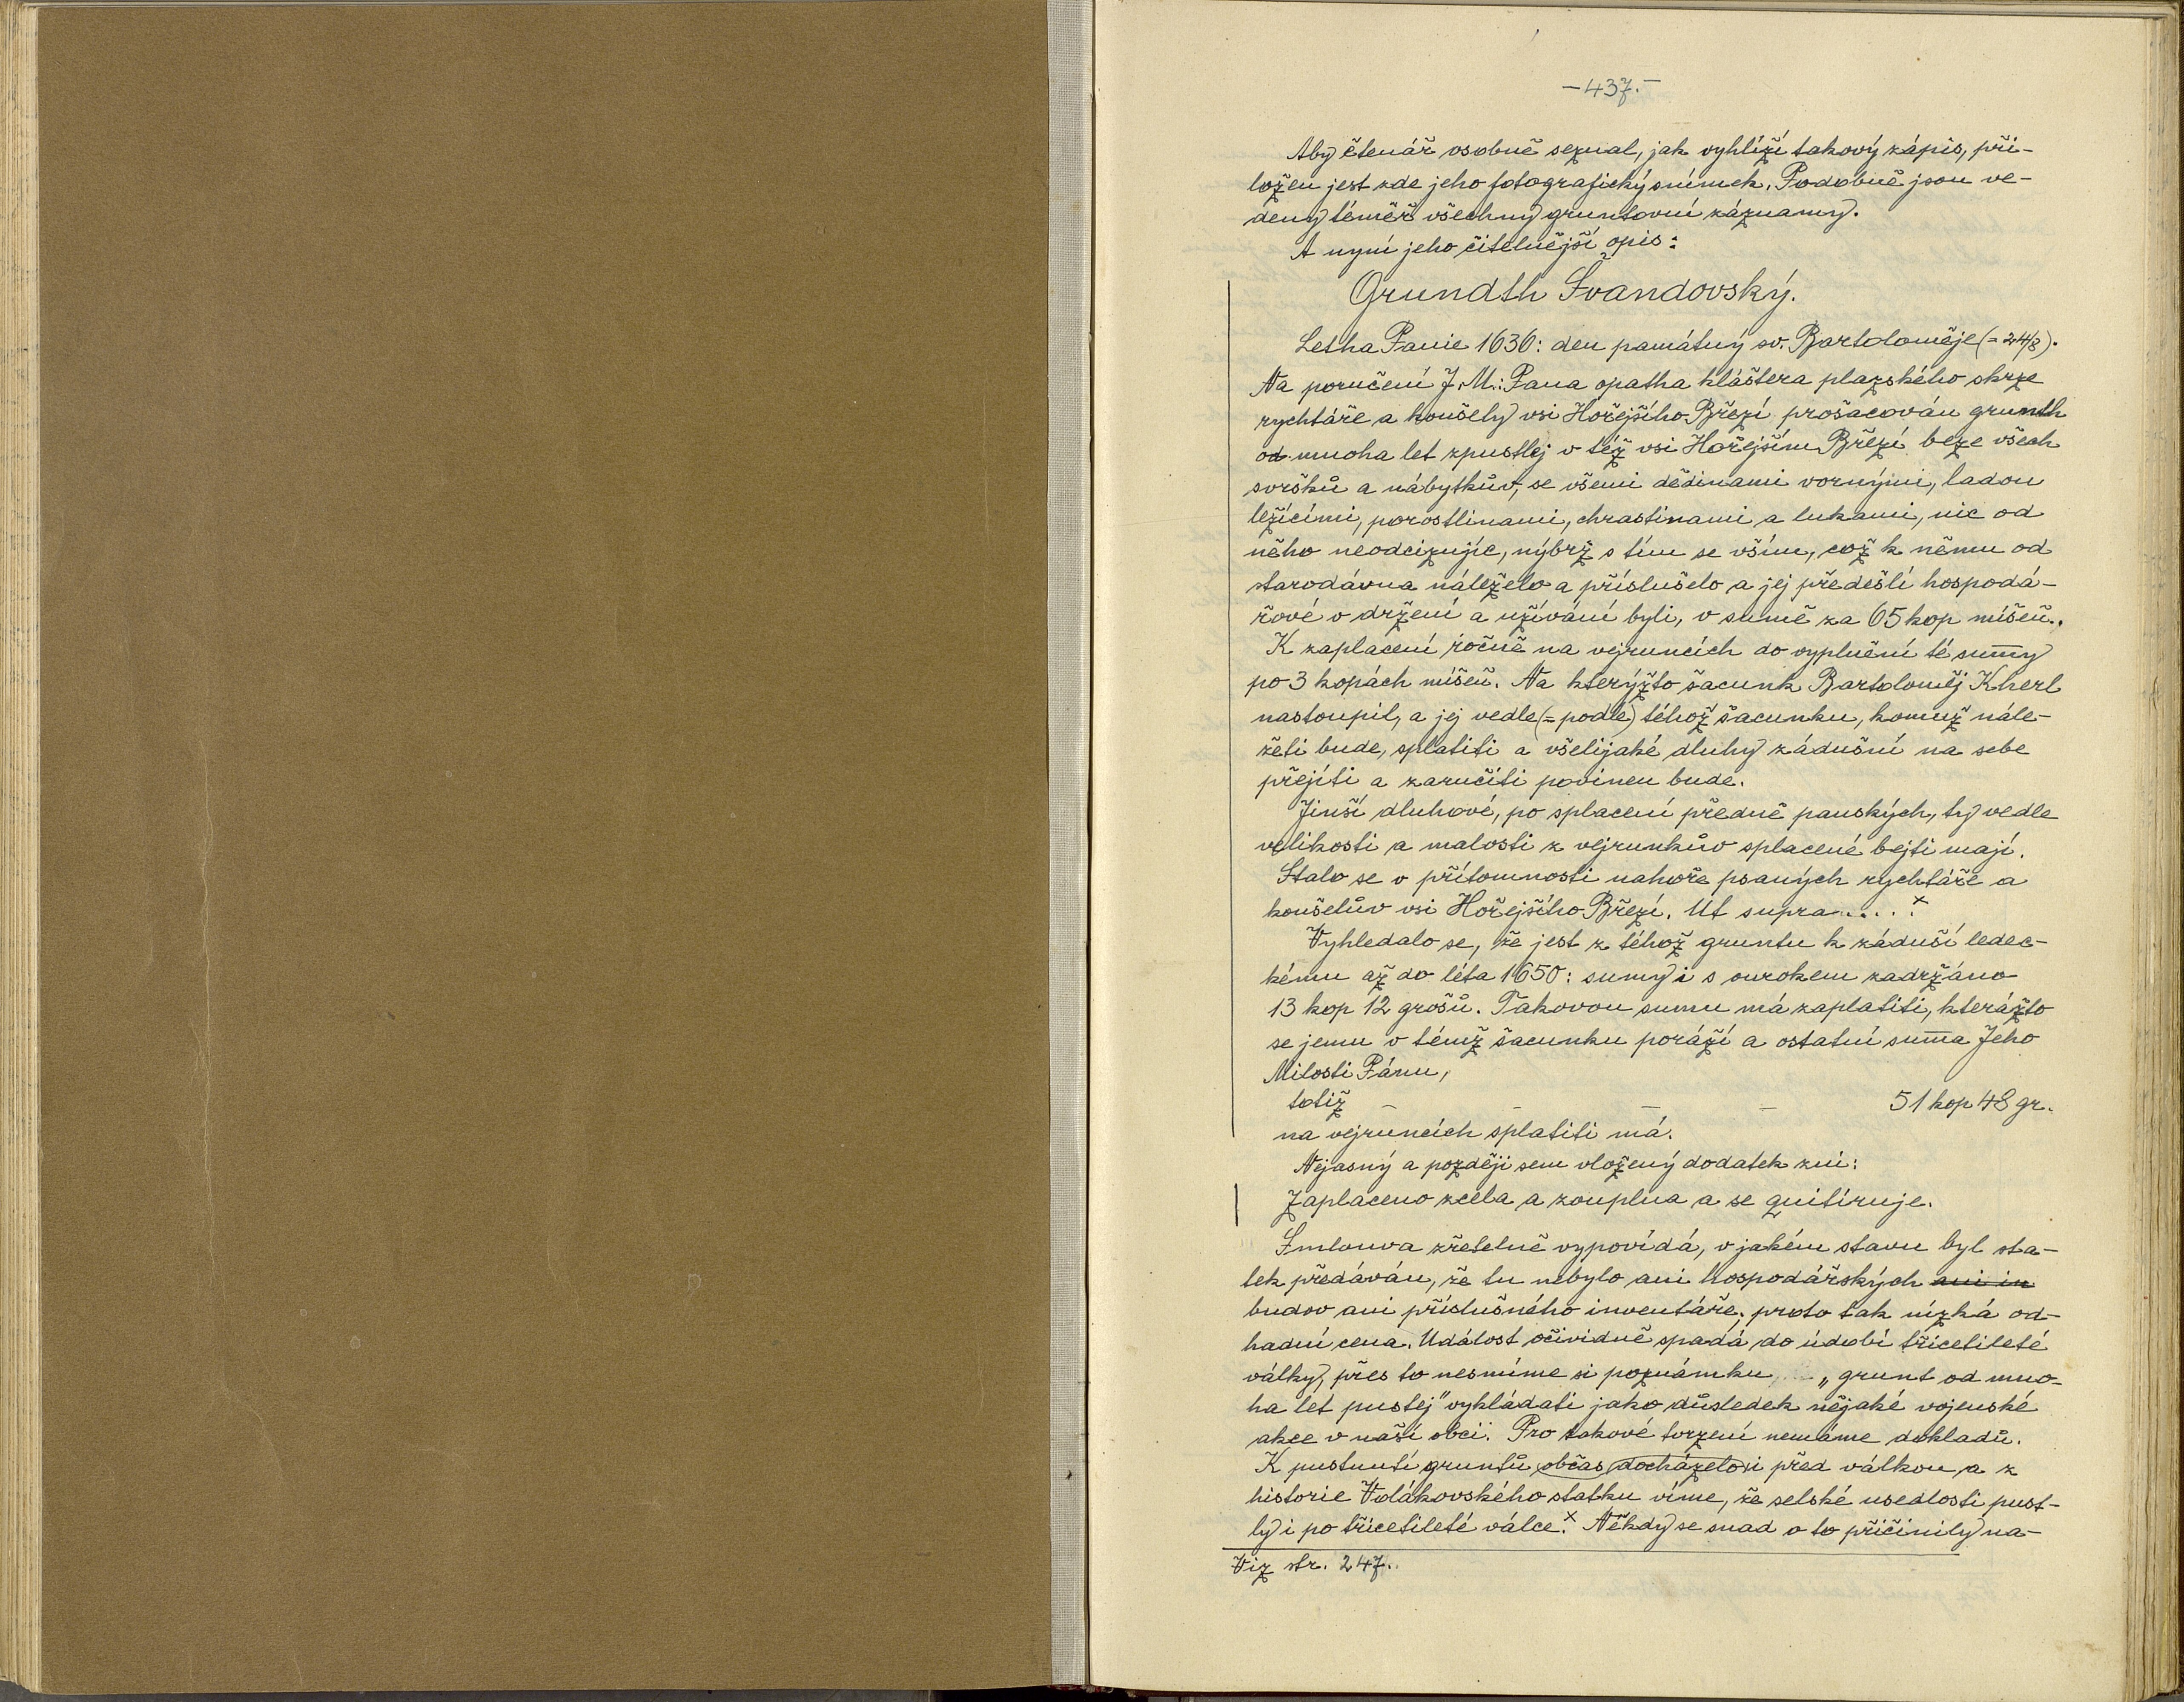 -437.-
Aby čtenář osobně seznal, jak vyhlíží takový zápis, při-
ložen jest zde jeho fotografický snímek. Podobně jsou ve-
deny téměř všechny gruntovní záznamy.
A nyní jeho čitelnější opis:
Grundth Švandovský.
Letha Panie 1636: den památný sv. Bartoloměje (= 24/8).
Na poručení J. M.: Pana opatha kláštera plazského skrze
rychtáře a koušely vsi Hořejšího Březí prošacován grunth
od mnoha let zpustlej v též vsi Hořejším Březí beze všech
svršků a nábytkův, se všemi dědinami vornými, ladou
ležícími, porostlinami, chrastinami a lukami, nic od
něho neodcizujíc, nýbrž s tím se vším, což k němu od
starodávna náleželo a příslušelo a jej předešlí hospodá-
řové v držení a užívání byli, v sumě za 65 kop míšeň..
K zaplacení ročně na vejruncích do vyplnění té sumy
po 3 kopách míšeň. Na kterýžto šacunk Bartoloměj Kherl
nastoupil, a jej vedle (= podle) téhož šacunku, komuž nále-
žeti bude, splatiti a všelijaké dluhy zádušní na sebe
přejíti a zaručiti povinen bude.
Jinší dluhové, po splacení předně panských, ty vedle
velikosti a malosti z vejrunkův splacené bejti mají.
Stalo se v přítomnosti nahoře psaných rychtáře a
koušelův vsi Hořejšího Březí. Ut supra.....x
Vyhledalo se, že jest z téhož gruntu k záduší ledec-
kému až do léta 1650: sumy i s ourokem zadržáno
13 kop 12 grošů. Takovou sumu má zaplatiti, kterážto
se jemu v témž šacunku poráží a ostatní suma Jeho
Milosti Pánu,
totiž – – – – 51 kop 48 gr.
na vejruncích splatiti má.
Nejasný a později sem vložený dodatek zní:
Zaplaceno zcela a zouplna a se quitíruje.
Smlouva zřetelně vypovídá, v jakém stavu byl sta-
tek předáván, že tu nebylo ani hospodářských ani in
budov ani příslušného inventáře, proto tak nízká od-
hadní cena. Událost očividně spadá do údobí třicetileté
války, přes to nesmíme si poznámku „grunt od mno-
ha let pustej" vykládati jako důsledek nějaké vojenské
akce v naší obci. Pro takové tvrzení nemáme dokladů.
K pustnutí gruntů občas docházelo i před válkou a z
historie Volákovského statku víme, že selské usedlosti pust-
ly i po třicetileté válce.x Někdy se snad o to přičinily ná-
Viz str. 247.